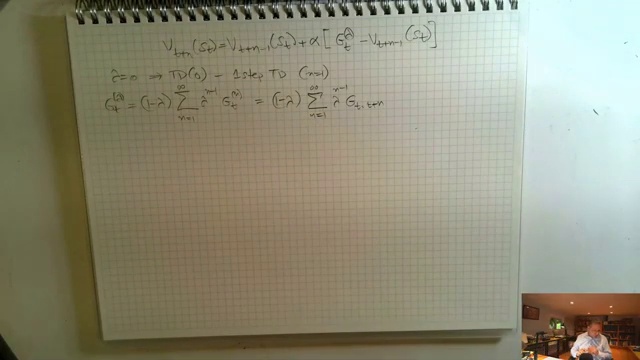 V_{t+n}(S_t) = V_{t+n-1}(S_t) + α [ G_t^{(λ)} - V_{t+n-1}(S_t) ]
λ=0 ⟹ TD(0) - 1 step TD (n=1)
G_t^{(λ)} = (1-λ) ∑_{n=1}^{∞} λ^{n-1} G_t^{(n)} = (1-λ) ∑_{n=1}^{∞} λ^{n-1} G_{t, t+n}